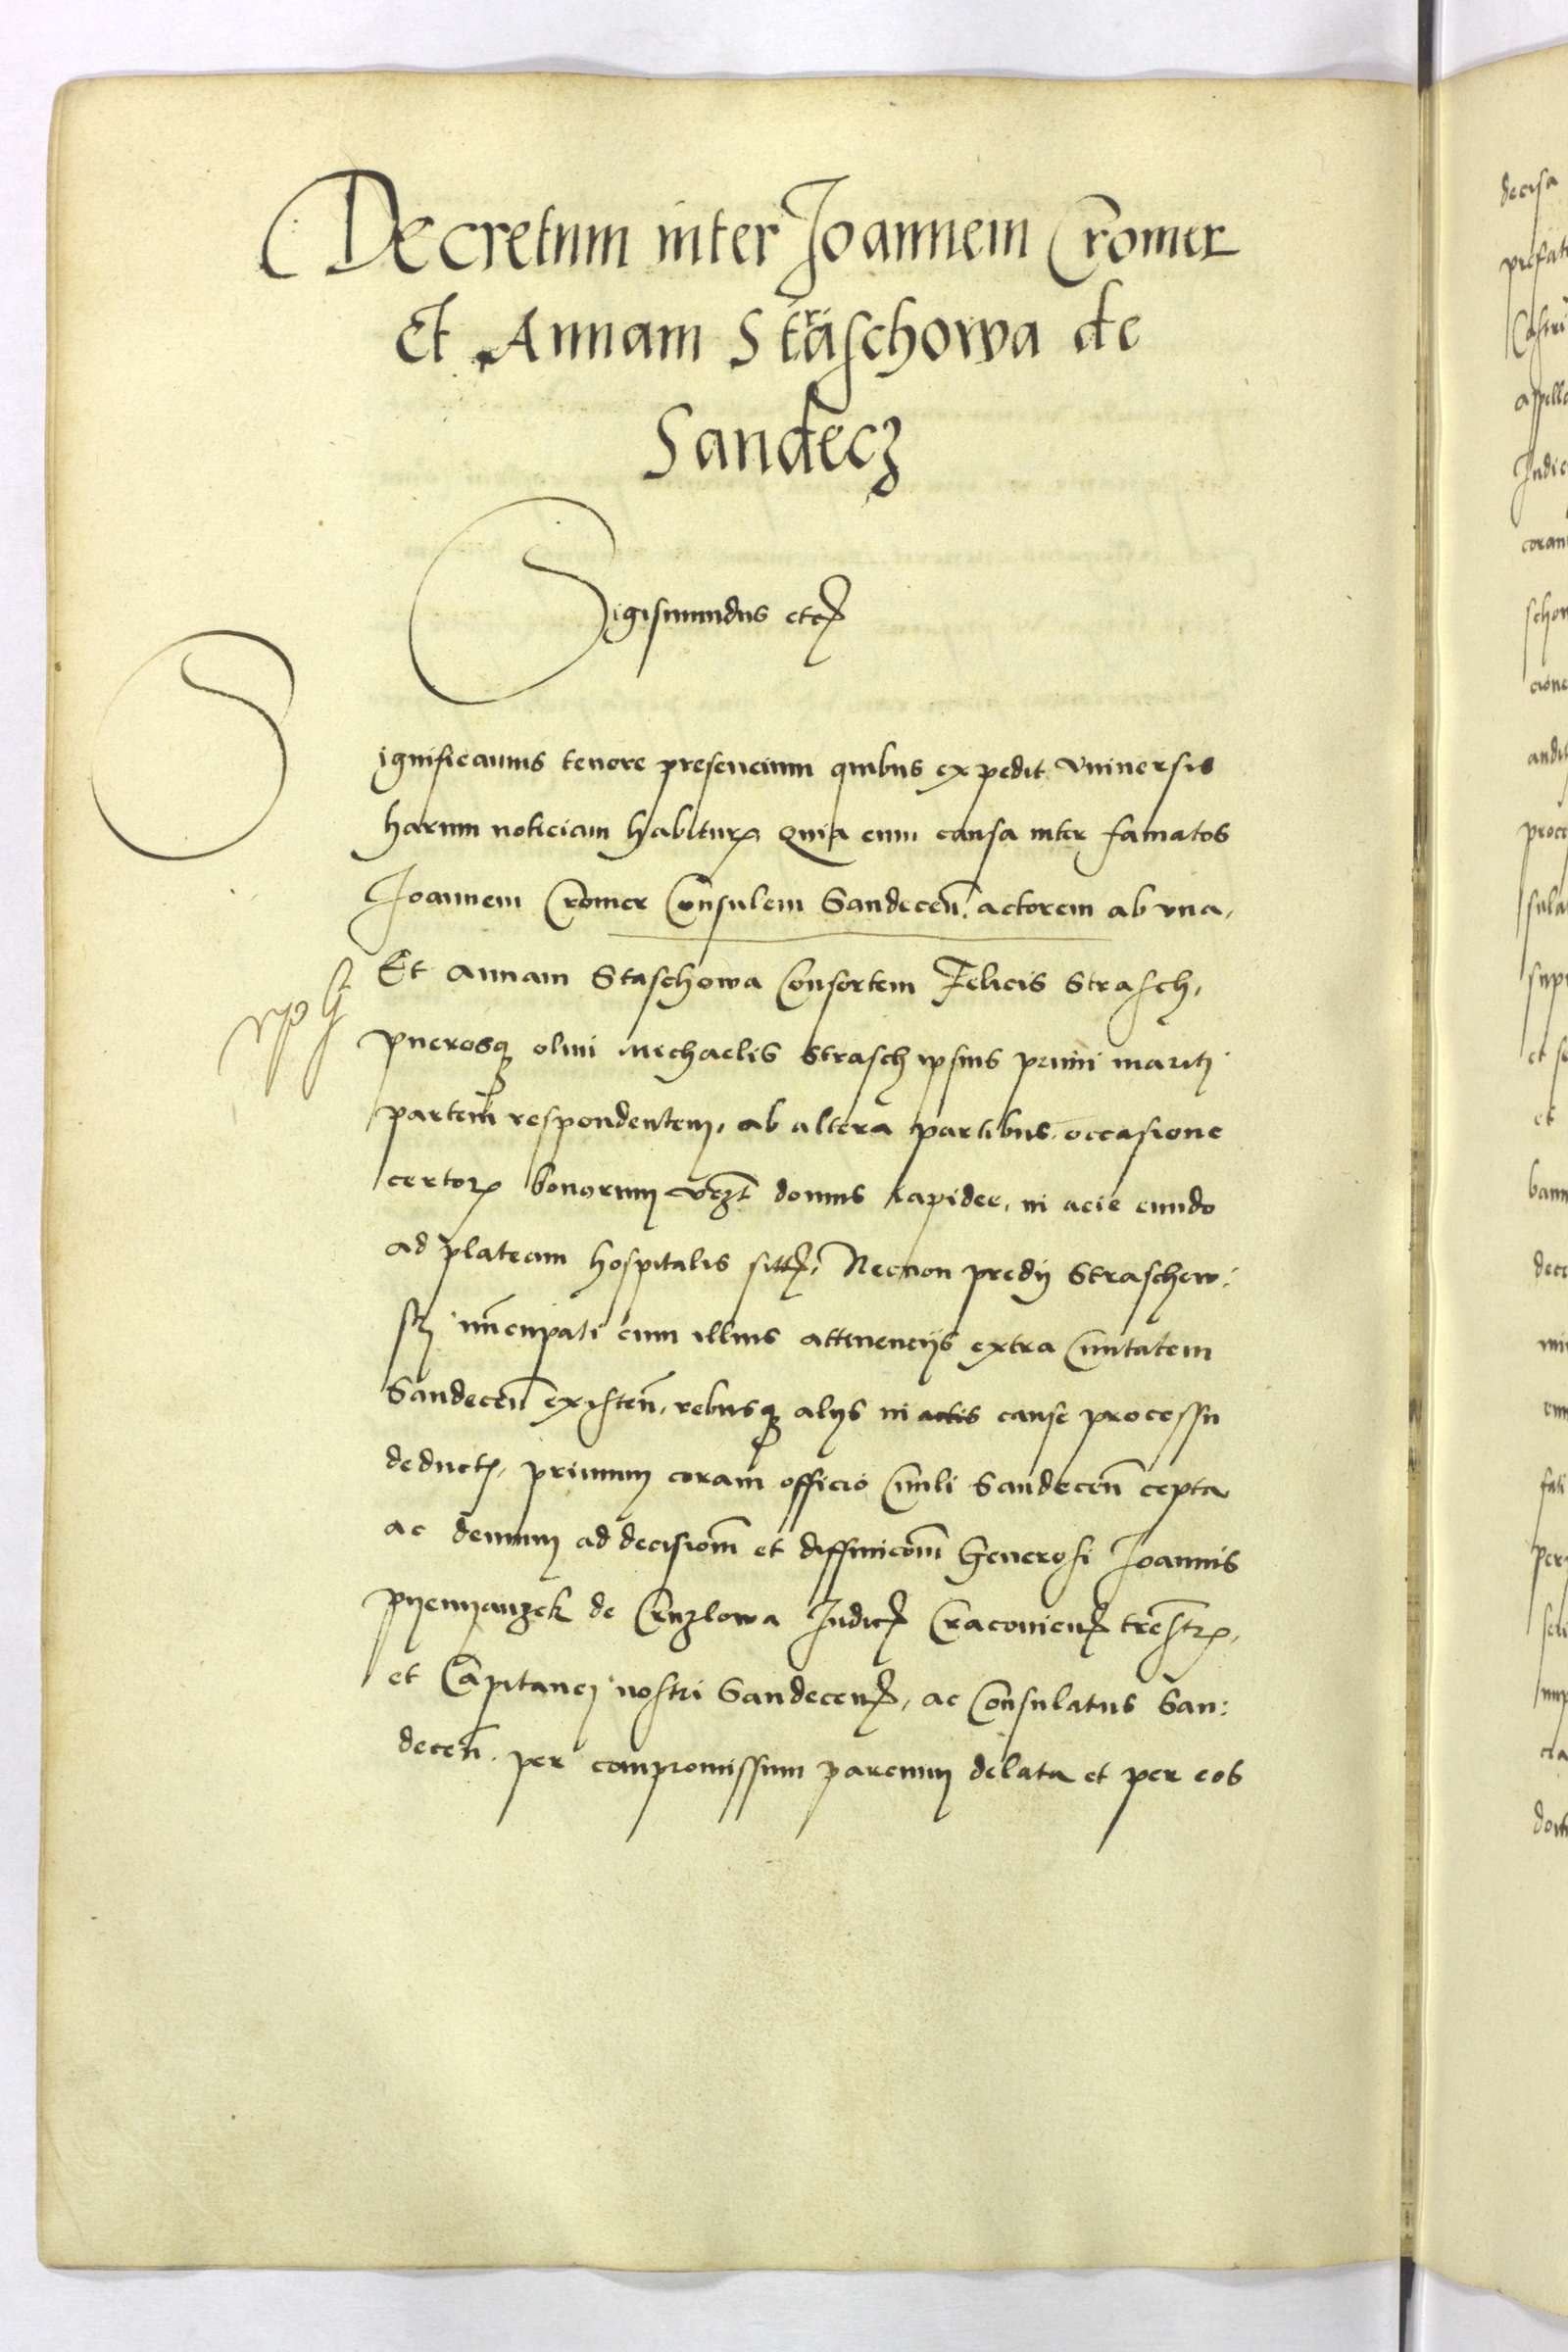 Decretum inter Joannem Cromer
Et Annam Straschowa de
Sandecz
Sigismundus etc
Significamus tenore presencium quibus expedit vniuersis
harum noticiam habitur Quia cum causa inter famatos
Joannem Cromer Consulem Sandecen. actorem ab vna,
Et Annam Staschowa Consortem Felicis Strasch,
puerosq olim Michaelis Strasch ipsius primi mariti
partem respondentem, ab altera partibus, occasione
certor bonorum vczt domus lapidee, in acie eundo
ad plateam hospitalis sitt, Necnon predij Straschow:
skj nuncupati cum illius attinencijs extra Ciuitatem
Sandecen existen, rebusq alijs in actis cause processu
deduct, primum coram officio Ciuili Sandecen cepta
ac demum ad decisiom et diffinicom Generosi Joannis
pyenyanzek de Cruzlowa Judic Cracovien trestr,
et Capitanej nostri Sandecen, ac Consulatus San:
decen. per compromissum parcium delata et per eos
decisa
prefat
Castri
appella
Judic
coram
schow
cione
audit
proce
sula
sup
et
bann
dece